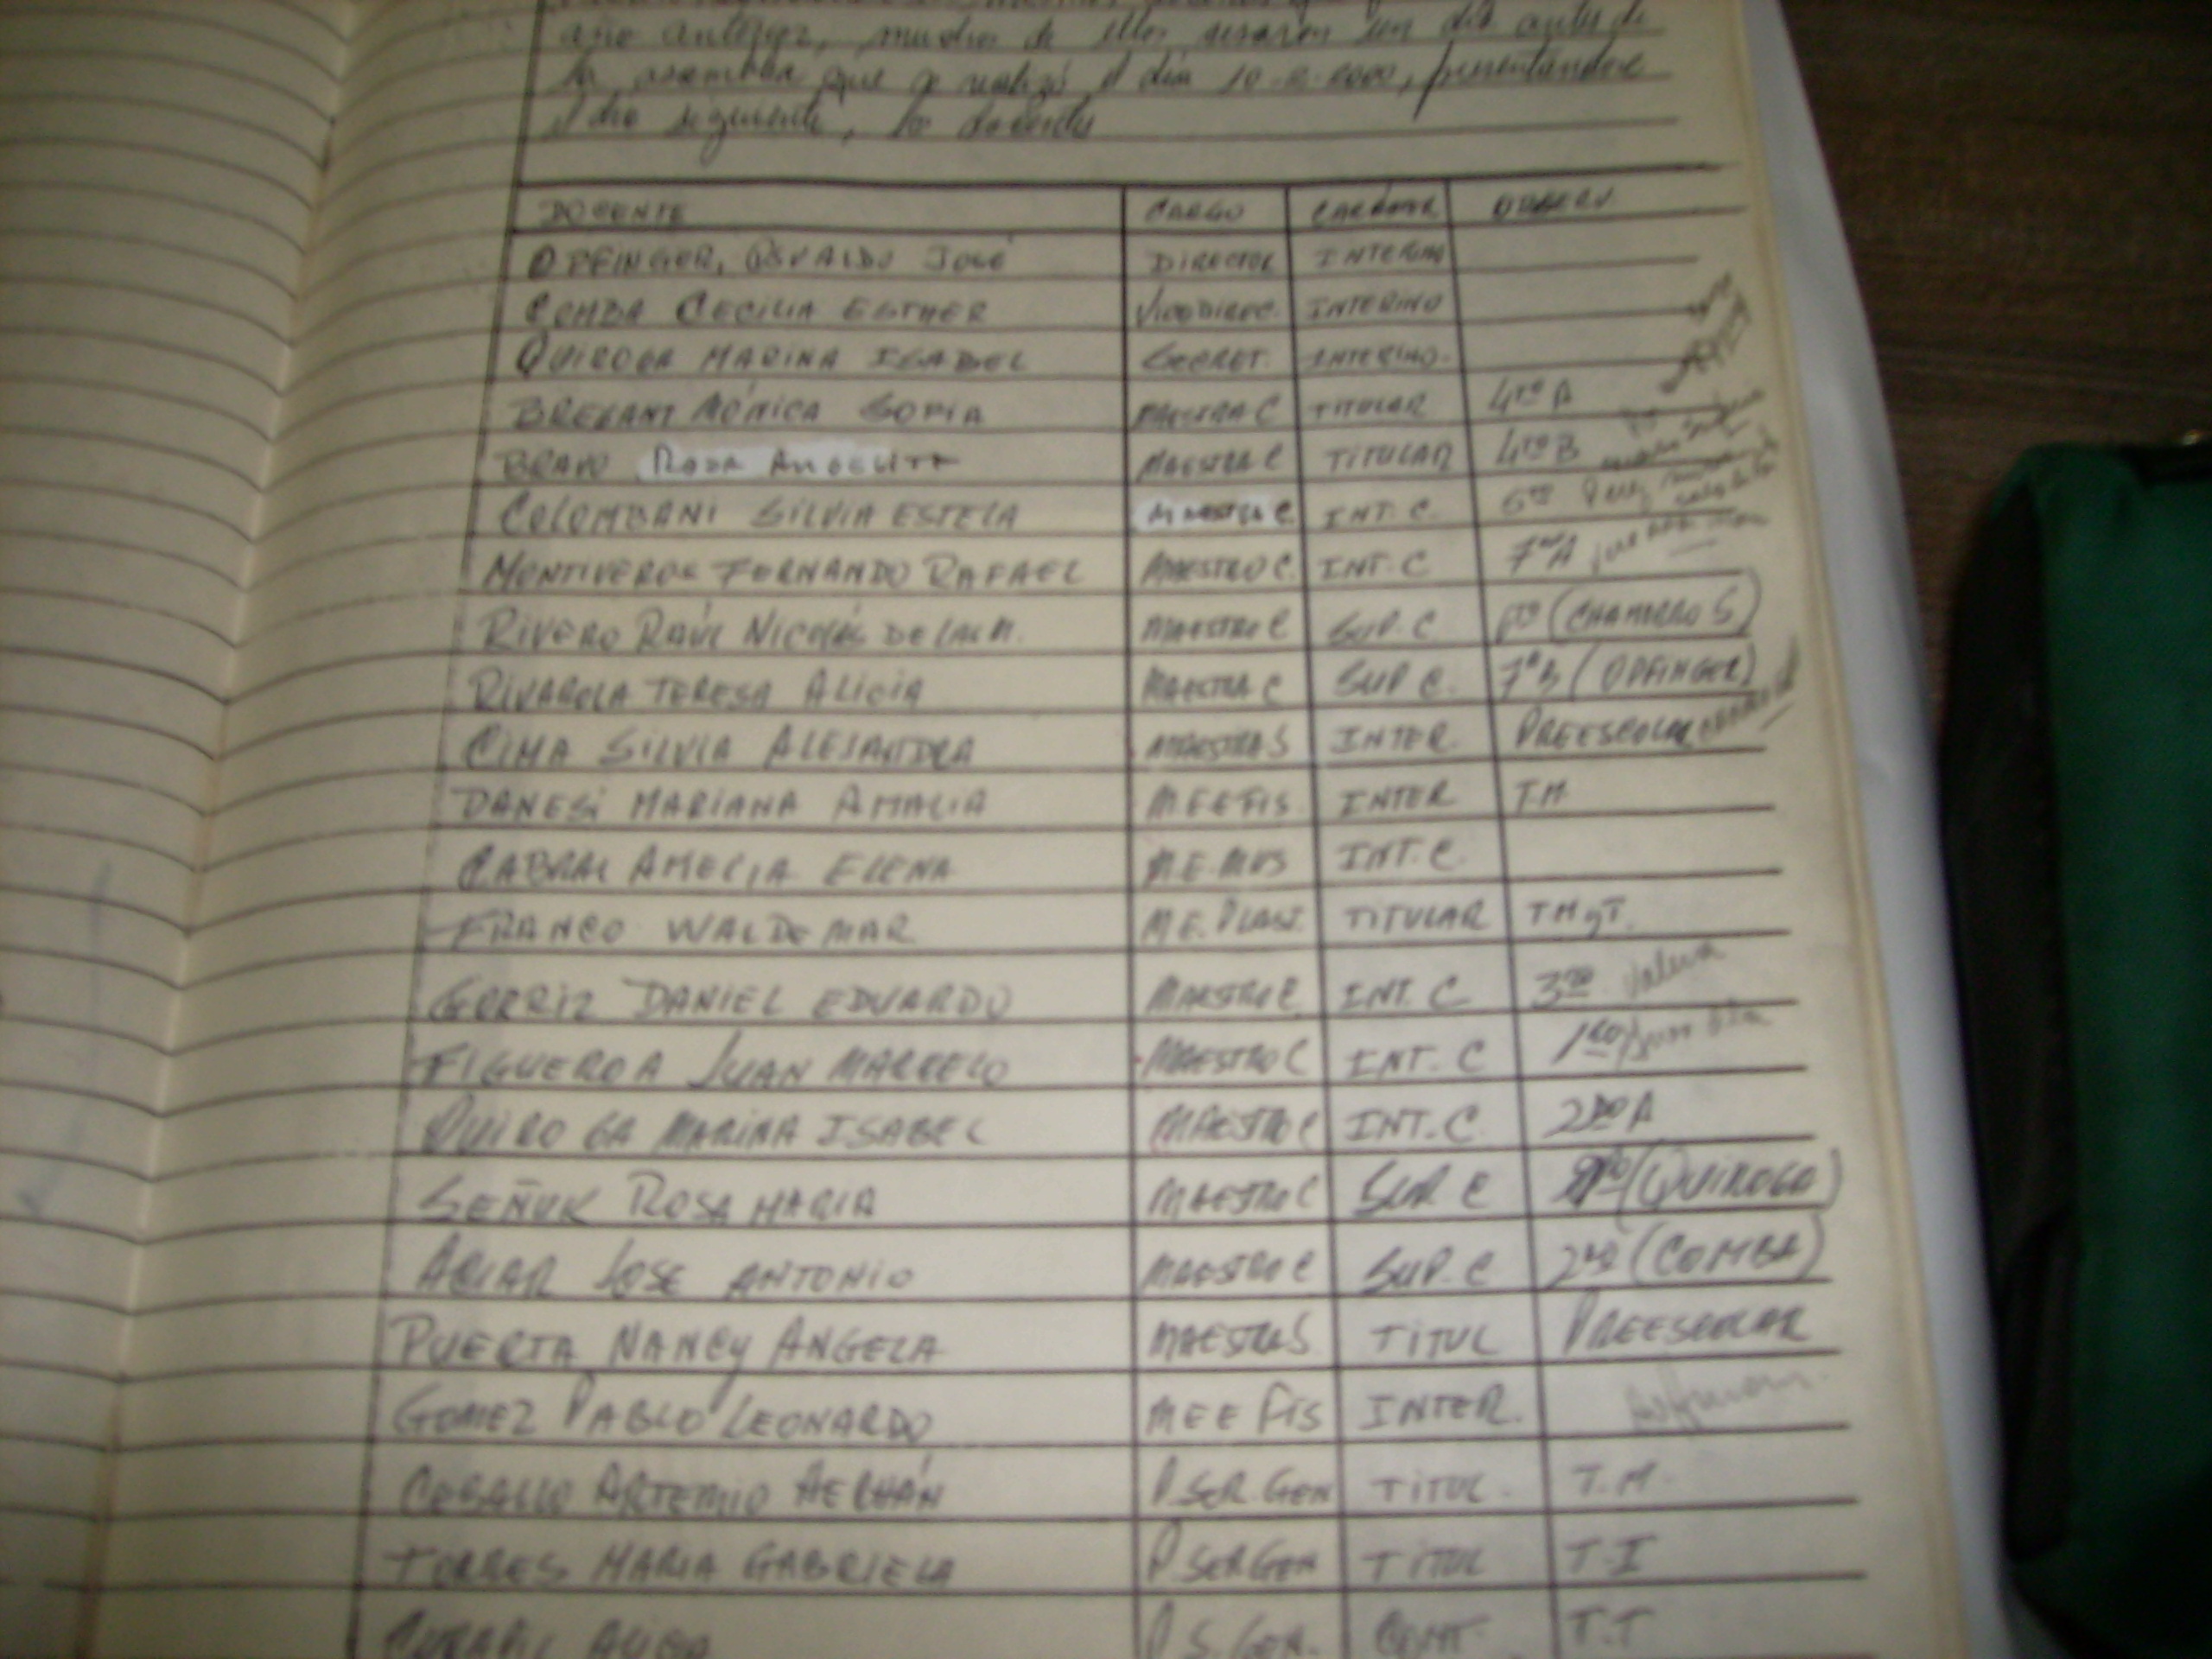 año anterior, muchos de ellos un día antes de
la asamblea que se realizó el día 10-2-2000, presentándose
el día siguiente, los docentes
DOCENTE CARGO CARÁCTER OBSERV.
OPFINGER, OSVALDO JOSÉ DIRECTOR INTERINO
COMBA CECILIA ESTHER VICEDIREC. INTERINO
QUIROGA MARINA ISABEL SECRET. INTERINO.
MÓNICA SOFIA MAESTRA C TITULAR 4to A
BRAVO ROSA ANGELITA MAESTRA C TITULAR 4to B
COLOMBANI SILVIA ESTELA MAESTRA C INT. C.
MONTIVEROS FERNANDO RAFAEL MAESTRO C. INT. C 7mo A
RIVERO RAÚL NICOLÁS DE LA M. MAESTRO C SUP. C (CHAMORRO S)
RIVAROLA TERESA ALICIA MAESTRA C SUP C. 7º B (OPFINGER)
CIMA SILVIA ALEJANDRA MAESTRA S INTER. PREESCOLAR
DANESI MARIANA AMALIA M E E FIS INTER T.M
CABRAL AMELIA ELENA M.E. MUS INT. C.
FRANCO WALDEMAR M E. PLAST. TITULAR T M y T.
GORRIZ DANIEL EDUARDO MAESTRO C INT. C 3ro Valeria
FIGUEROA JUAN MARCELO MAESTRO C INT. C 1ro
QUIROGA MARINA ISABEL MAESTRO C INT. C 2do A
SEÑUK ROSA MARIA MAESTRO C SUP C (QUIROGA)
JOSE ANTONIO MAESTRO C SUP. C 2do (COMBA)
PUERTA NANCY ANGELA MAESTRA S TITUL PREESCOLAR
GOMEZ PABLO LEONARDO M E E FIS INTER.
CEBALLO ARTEMIO P. SER. GEN TITUL. T. M.
TORRES MARIA GABRIELA P. SER GEN TITUL T. I
P S. GEN. CONT. T. T